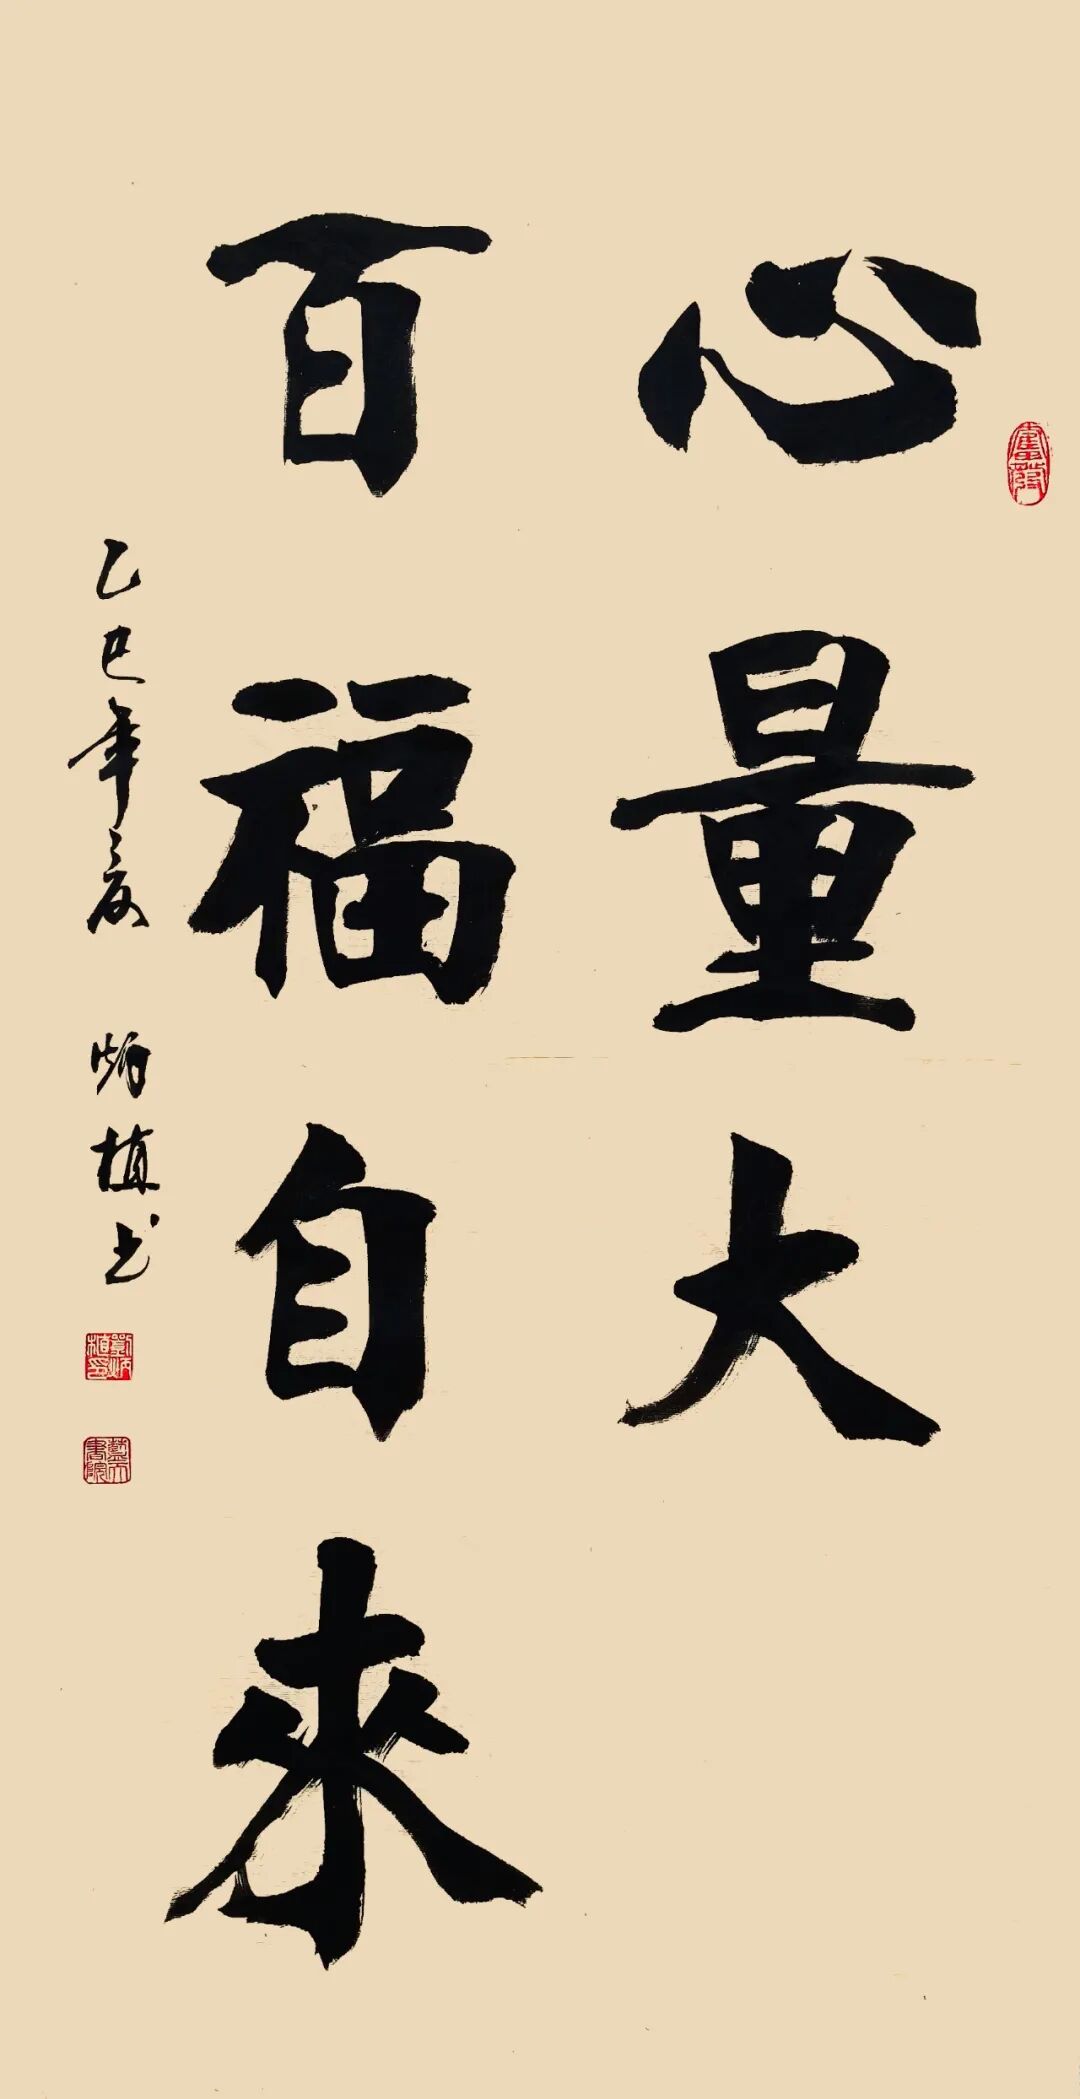 心量大
百福自来
乙巳年夏 炳植书